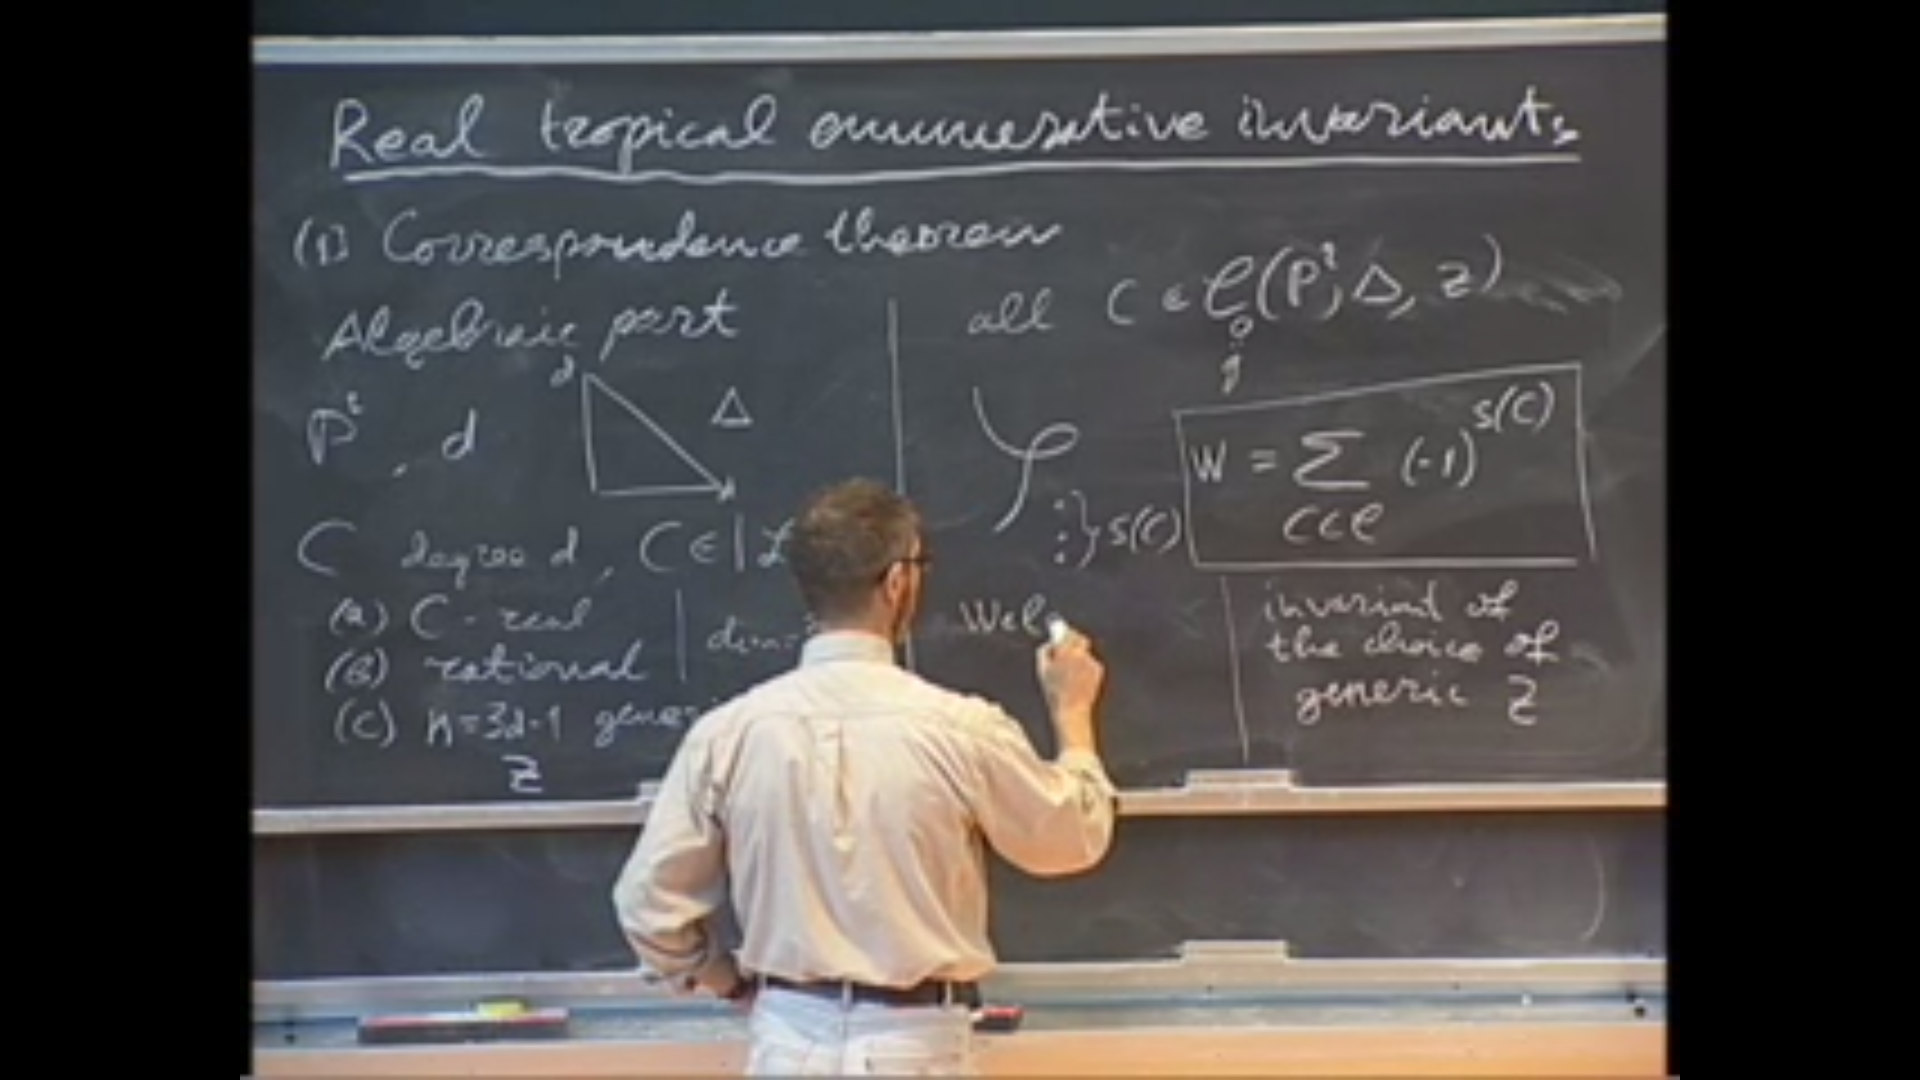 Real tropical enumerative invariants
(1) Correspondence theorem
Algebraic part
d
Δ
P², d
C degree d, C ∈ |L
(a) C - real
(b) rational
(c) n=3d-1 gener
Z
dim=
all C ∈ C(P², Δ, Z)
0
g
:} S(C)
W = Σ (-1)^S(C)
C∈C
Wels
invariant of
the choice of
generic Z